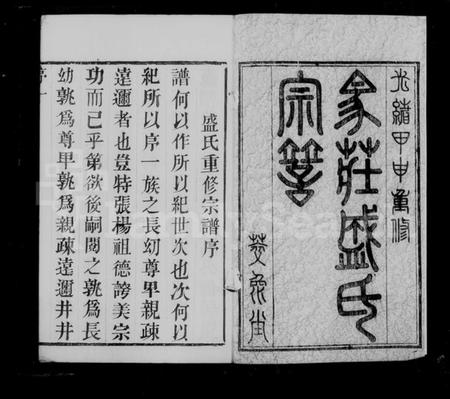 光緒甲申重修
莊盛氏
宗譜
堂
盛氏重修宗譜序
譜何以作所以紀世次也次何以
紀所以序一族之長幼尊卑親疎
遠邇者也豈特張楊祖德誇美宗
功而已乎第欲後嗣閱之孰爲長
幼孰爲尊卑孰爲親疎遠邇井井
序 一